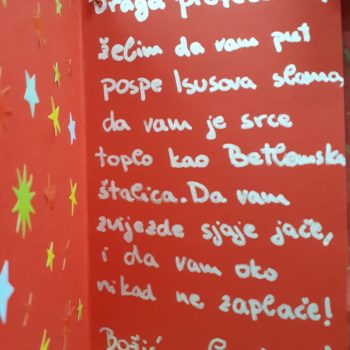 Draga
želim da vam put
pospe Isusova slama,
da vam je srce
toplo kao Betlemska
štalica. Da vam
zvijezde sjaje jače,
i da vam oko
nikad ne zaplače!
Božić